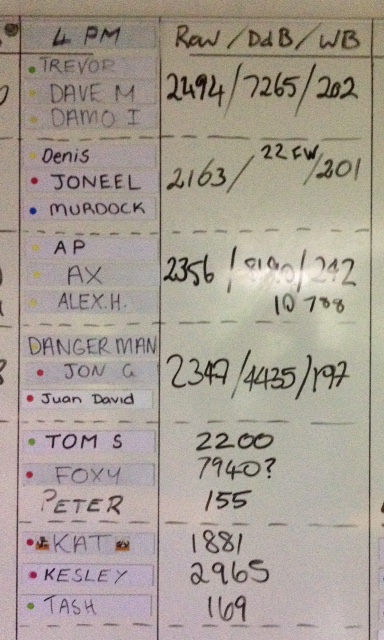 4 PM Raw / DdB / WB
TREVOR
DAVE M 2494/7265/202
DAMO I
Denis 22 EW
JONEEL 2163/ /201
MURDOCK
AP
AX 2356/8190/242
ALEX.H. 10 788
DANGERMAN
JON G 2347/4435/197
Juan David
TOM S 2200
FOXY 7940?
PETER 155
KAT 1881
KESLEY 2965
TASH 169